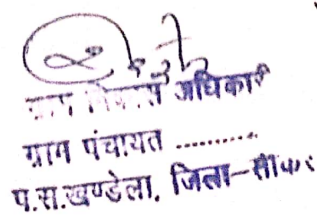 ग्राम विकास अधिकारी
ग्राम पंचायत .........
प.स.खण्डेला, जिला-सीकर